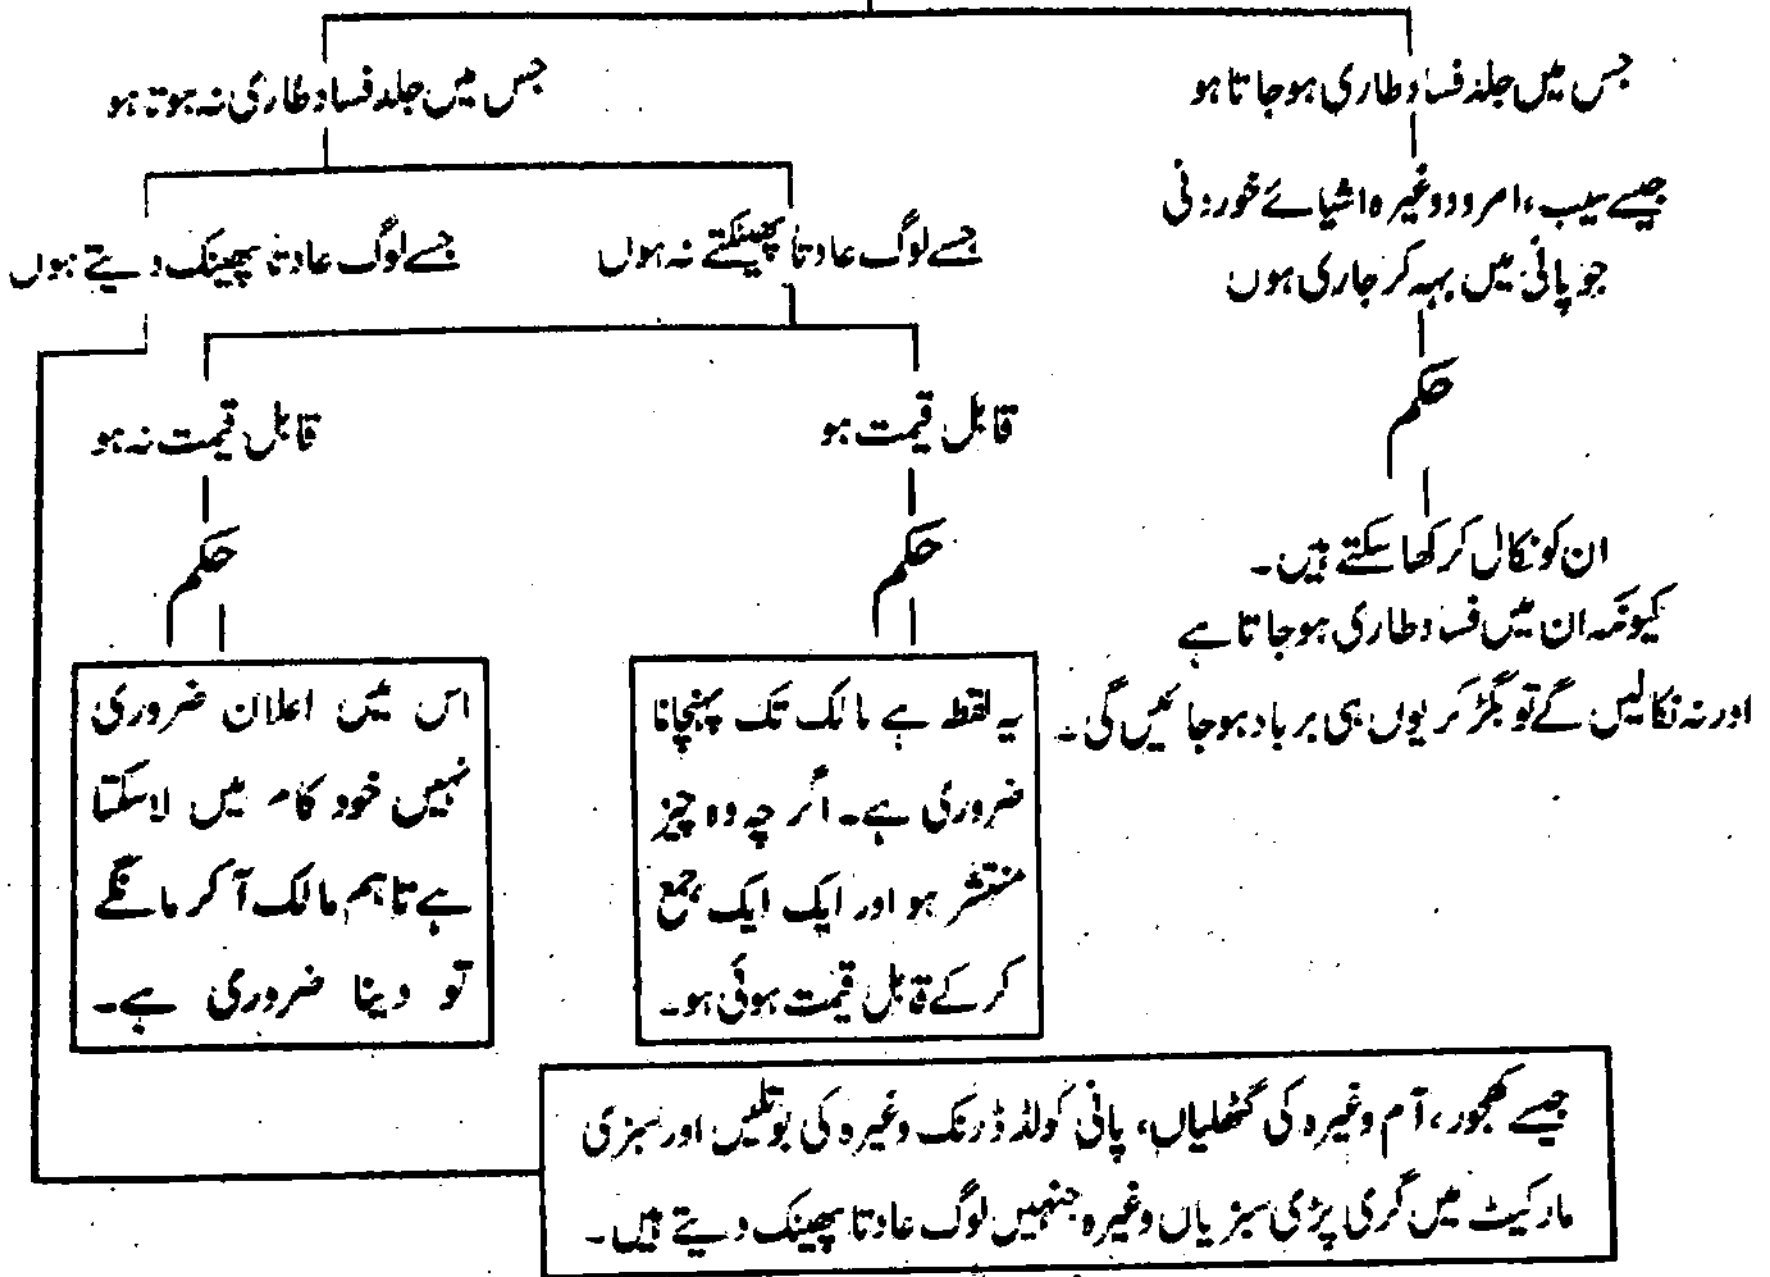 جس میں جلد فساد طاری ہوجاتا ہو
جیسے سیب، امرود وغیرہ اشیائے خوردنی
جو پانی میں بہہ کر جاری ہوں
حکم
ان کو نکال کر کھا سکتے ہیں۔
کیونکہ ان میں فساد طاری ہوجاتا ہے
اور نہ نکالیں گے تو بگڑ کر یوں ہی برباد ہوجائیں گی۔
جس میں جلد فساد طاری نہ ہوتا ہو
جسے لوگ عادتا پھینکتے نہ ہوں
قابل قیمت ہو
حکم
یہ لقطہ ہے مالک تک پہنچانا
ضروری ہے۔ اگر چہ وہ چیز
منتشر ہو اور ایک ایک جمع
کر کے قابل قیمت ہوئی ہو۔
قابل قیمت نہ ہو
حکم
اس میں اعلان ضروری
نہیں خود کام میں لاسکتا
ہے تاہم مالک آکر مانگے
تو دینا ضروری ہے۔
جسے لوگ عادتا پھینک دیتے ہوں
جیسے کھجور، آم وغیرہ کی گٹھلیاں، پانی کولڈ ڈرنک وغیرہ کی بوتلیں اور سبزی
مارکیٹ میں گری پڑی سبزیاں وغیرہ جنہیں لوگ عادتا پھینک دیتے ہیں۔